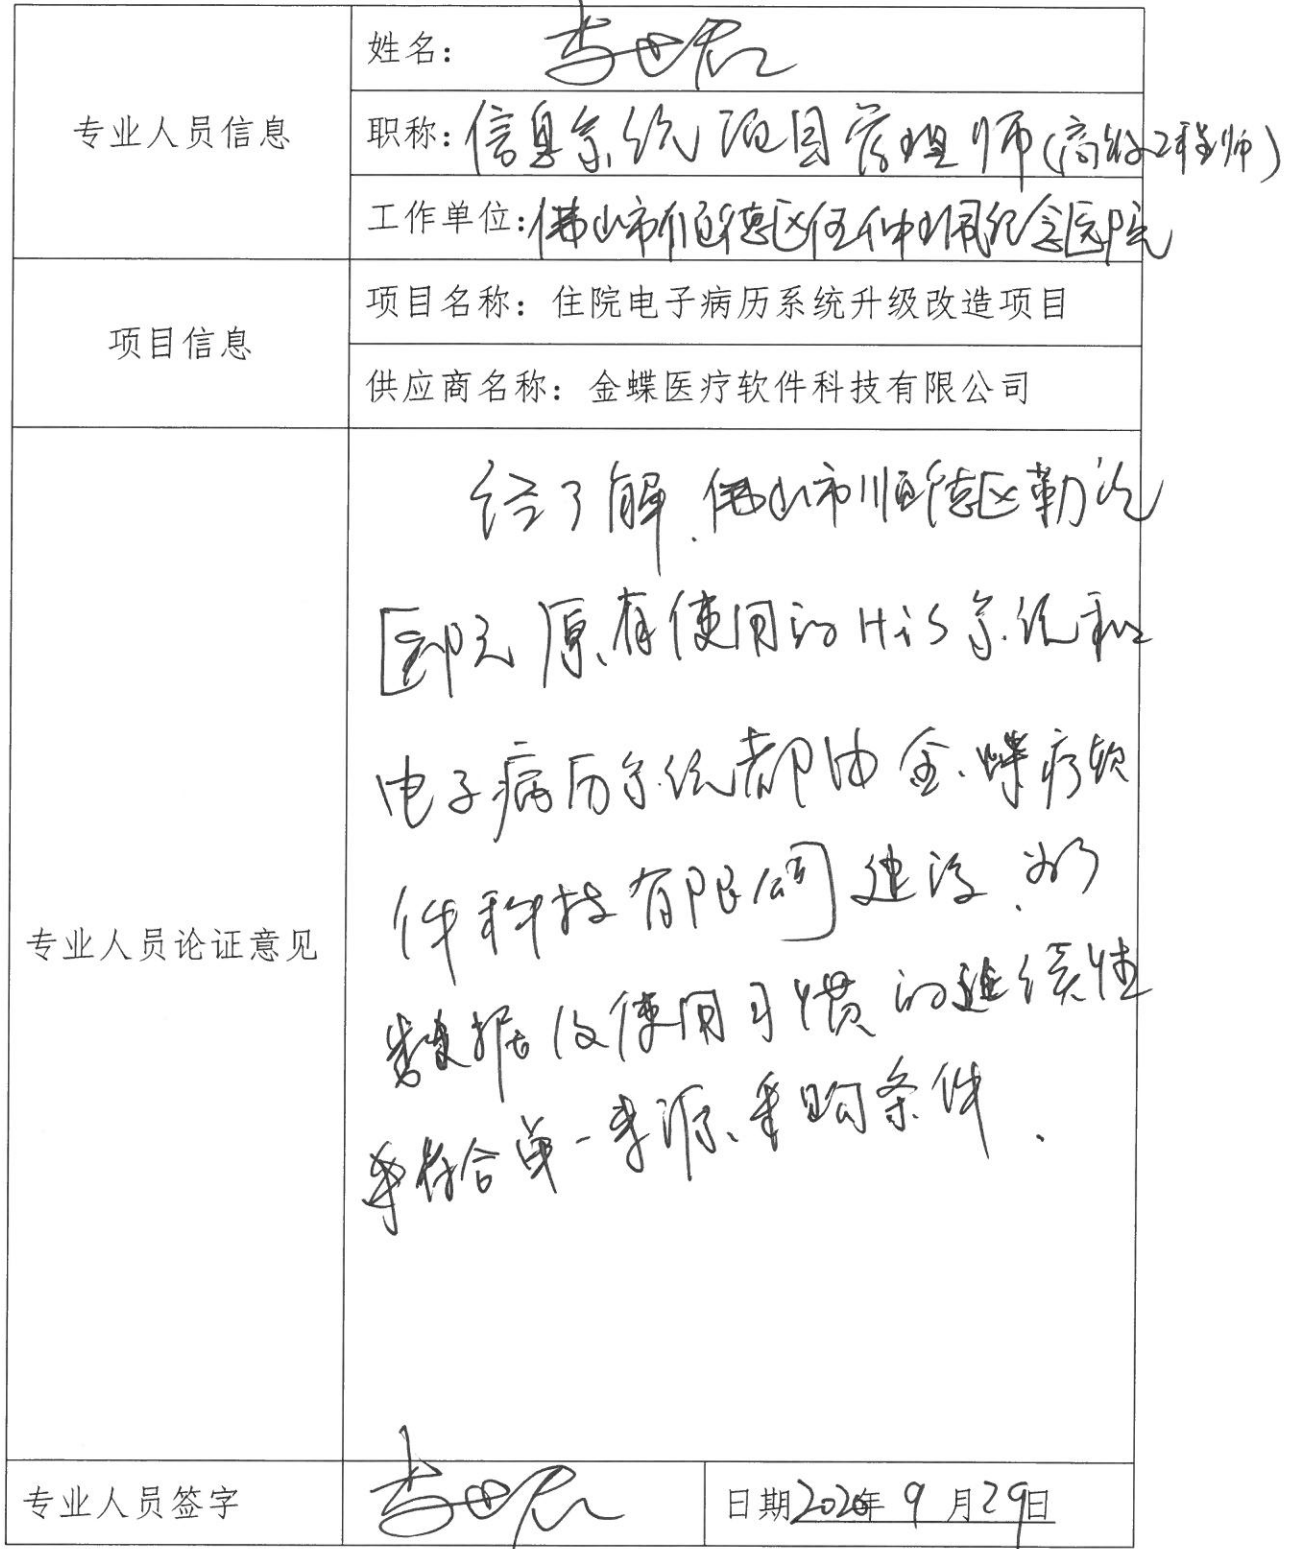 专业人员信息
姓名：李世
职称：信息系统项目管理师(高级工程师)
工作单位：佛山市顺德区伍仲珮纪念医院
项目信息
项目名称：住院电子病历系统升级改造项目
供应商名称：金蝶医疗软件科技有限公司
专业人员论证意见
经了解，佛山市顺德区勒流
医院原有使用的His系统和
电子病历系统都由金蝶疗软
件科技有限公司建设，为了
数据及使用习惯的延续性
符合单一来源采购条件．
专业人员签字
李世
日期2020年9月29日